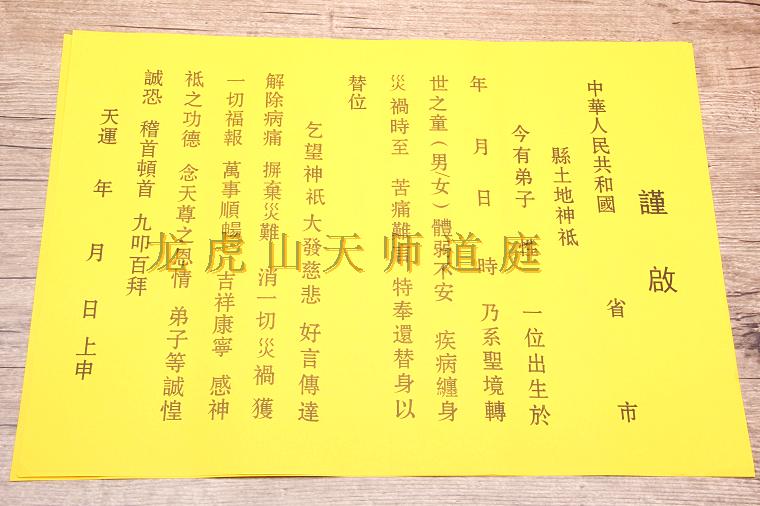 謹啟
中華人民共和國 省 市
縣土地神祇
今有弟子 性 一位出生於
年 月 日 時 乃系聖境轉
世之童(男/女)體弱不安 疾病纏身
災禍時至 苦痛難言特奉還替身以
替位
乞望神祇大發慈悲 好言傳達
解除病痛 摒棄災難 消一切災禍 獲
一切福報 萬事順暢 吉祥康寧 感神
祇之功德 念天尊之恩情 弟子等誠惶
誠恐 稽首頓首 九叩百拜
天運 年 月 日 上申
龙虎山天师道庭